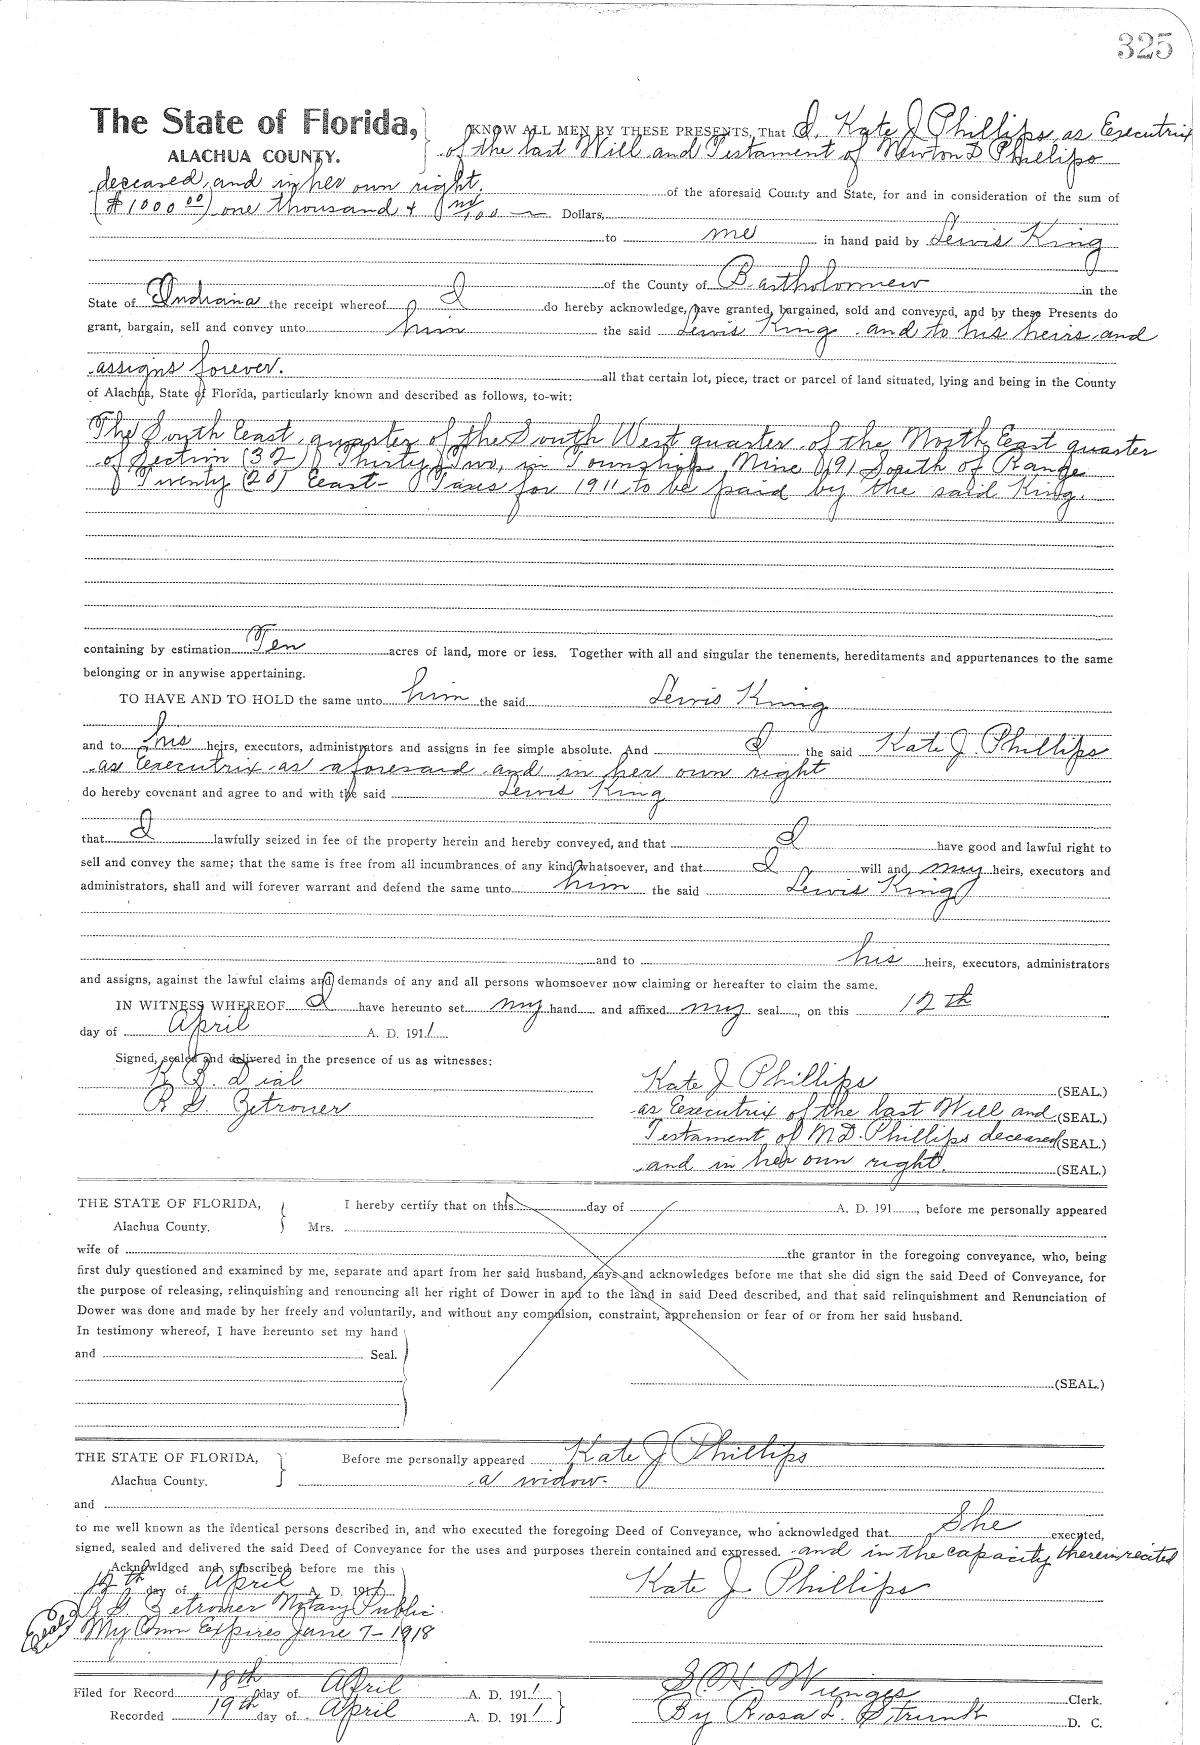 325
The State of Florida, KNOW ALL MEN BY THESE PRESENTS, That I, Kate J Phillips, as Executrix
ALACHUA COUNTY. of the last Will and Testament of Newton D Phillips
deceased, and in her own right. of the aforesaid County and State, for and in consideration of the sum of
($1000 00) one thousand + no/100 Dollars,
to me in hand paid by Lewis King
of the County of Bartholomew in the
State of Indiana the receipt whereof I do hereby acknowledge, have granted, bargained, sold and conveyed, and by these Presents do
grant, bargain, sell and convey unto him the said Lewis King and to his heirs and
assigns forever. all that certain lot, piece, tract or parcel of land situated, lying and being in the County
of Alachua, State of Florida, particularly known and described as follows, to-wit:
The South East quarter of the South West quarter of the North East quarter
of Section (32) Thirty Two, in Township Nine (9) South of Range
Twenty (20) East- Taxes for 1911 to be paid by the said King.
containing by estimation Ten acres of land, more or less. Together with all and singular the tenements, hereditaments and appurtenances to the same
belonging or in anywise appertaining.
TO HAVE AND TO HOLD the same unto him the said Lewis King
and to his heirs, executors, administrators and assigns in fee simple absolute. And I the said Kate J. Phillips
as Executrix as aforesaid and in her own right
do hereby covenant and agree to and with the said Lewis King
that I lawfully seized in fee of the property herein and hereby conveyed, and that I have good and lawful right to
sell and convey the same; that the same is free from all incumbrances of any kind whatsoever, and that I will and my heirs, executors and
administrators, shall and will forever warrant and defend the same unto him the said Lewis King
and to his heirs, executors, administrators
and assigns, against the lawful claims and demands of any and all persons whomsoever now claiming or hereafter to claim the same.
IN WITNESS WHEREOF I have hereunto set my hand and affixed my seal, on this 12th
day of April A. D. 1911.
Signed, sealed and delivered in the presence of us as witnesses:
K B. Dial Kate J Phillips (SEAL.)
R G. Zetrouer as Executrix of the last Will and (SEAL.)
Testament of N D. Phillips deceased (SEAL.)
and in her own right. (SEAL.)
THE STATE OF FLORIDA, I hereby certify that on this day of A. D. 191 , before me personally appeared
Alachua County. Mrs.
wife of the grantor in the foregoing conveyance, who, being
first duly questioned and examined by me, separate and apart from her said husband, says and acknowledges before me that she did sign the said Deed of Conveyance, for
the purpose of releasing, relinquishing and renouncing all her right of Dower in and to the land in said Deed described, and that said relinquishment and Renunciation of
Dower was done and made by her freely and voluntarily, and without any compulsion, constraint, apprehension or fear of or from her said husband.
In testimony whereof, I have hereunto set my hand
and Seal.
(SEAL.)
THE STATE OF FLORIDA, Before me personally appeared Kate J Phillips
Alachua County. a widow.
and
to me well known as the identical persons described in, and who executed the foregoing Deed of Conveyance, who acknowledged that She executed,
signed, sealed and delivered the said Deed of Conveyance for the uses and purposes therein contained and expressed. and in the capacity therein recited
Acknowldged and subscribed before me this
12th day of April A. D. 1911 Kate J Phillips
R G. Zetrouer Notary Public.
(Seal) My Com Expires June 7-1918
Filed for Record 18th day of April A. D. 1911 S. H. Wienges Clerk.
Recorded 19th day of April A. D. 1911 By Rosa L. Strunk D. C.